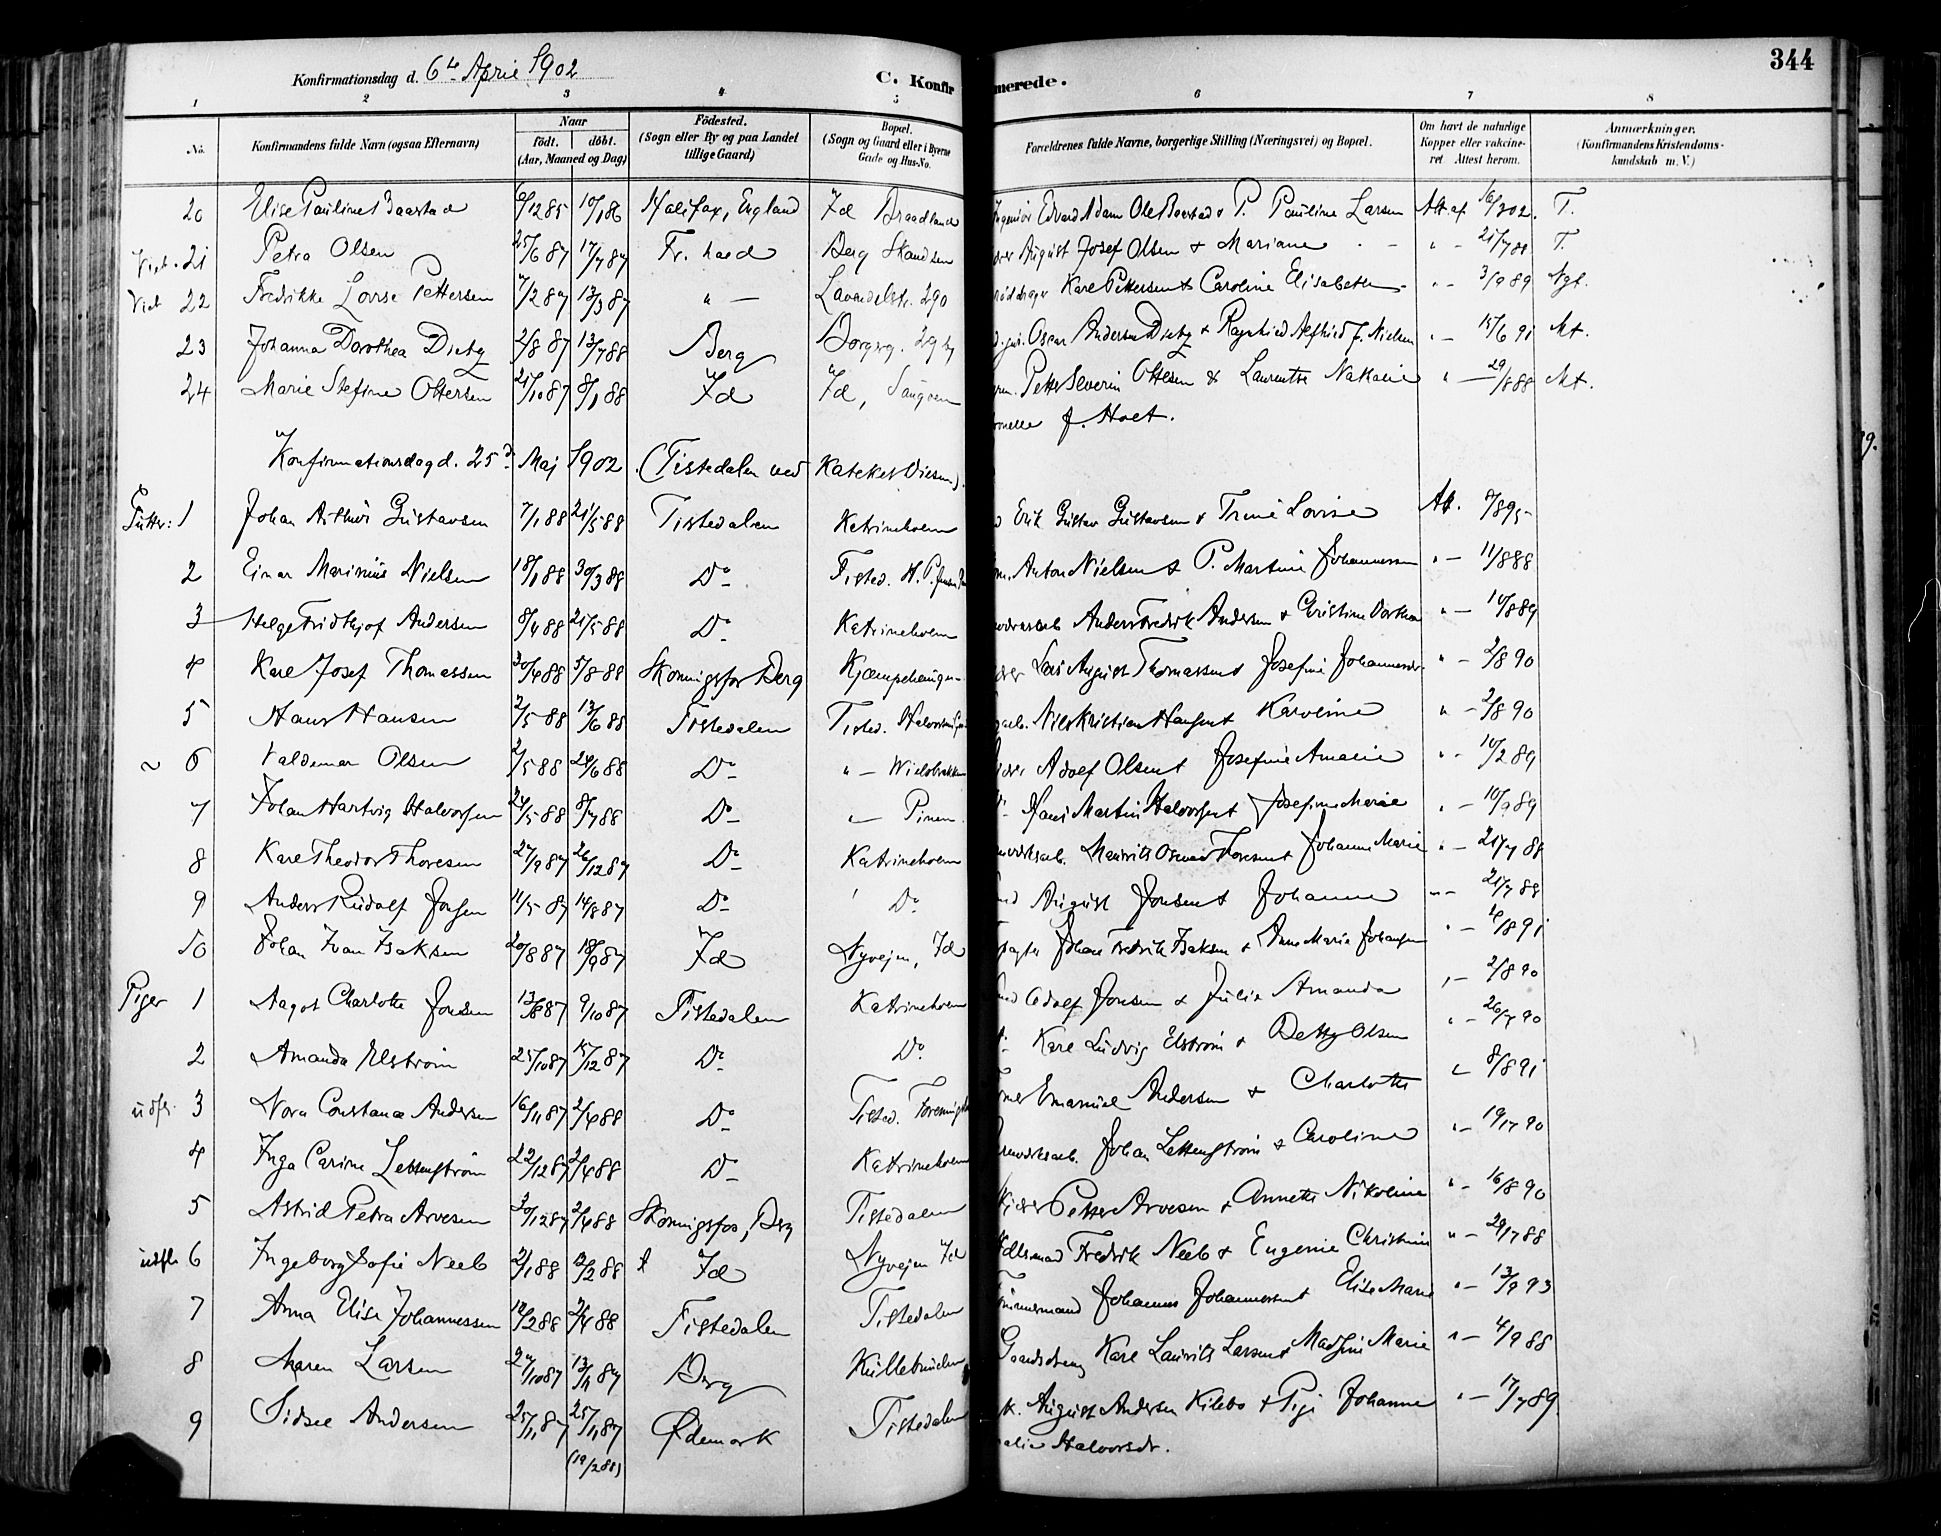 344
Konfirmationsdag d. 6te April 1902
C. Konfir merede.
1 2 3 4 5 6 7 8
No. Konfirmandens fulde Navn (ogsaa Efternavn) Naar født. døbt. (Aar, Maaned og Dag) Fødested. (Sogn eller By og paa Landet tillige Gaard) Bopæl. (Sogn og Gaard eller i Byerne Gade og Hus-No. Forældrenes fulde Navne, borgerlige Stilling (Næringsvei) og Bopæl. Om havt de naturlige Kopper eller vakcineret Attest herom. Anmærkninger. (Konfirmandens Kristendomskundskab m. V.)
20 Elise Pauline Baastad 6/12 85 10/1 86 Halifax, England Id Braadland Edvard Adam Ole Baastad & P. Pauline Larsen Att. af 16/3 02. T.
21 Petra Olsen 25/6 87 17/7 87 Fr. hald Berg Skandsen August Josef Olsen & Mariane " - 21/7 88 T.
22 Fredrikke Lovise Pettersen 7/2 87 13/3 87 " — Lavendelstr. 290 Karl Pettersen & Caroline Elisabeth " - 3/9 89 Ngt.
23 Johanna Dorothea Dietz 2/8 87 13/7 88 Berg Borgerg. Oscar Andersen Dietz & Ragnhild Alfhild f. Nielsen " - 15/6 91 Mt.
24 Marie Stefine Ottersen 21/10 87 8/1 88 Id Id, Petter Severin Ottesen & Laurentse Natalie " — 29/8 88 Mt.
f. Holt.
Konfirmationsdag d. 25d Maj 1902 (Tistedalen ved Kateket Olsen).
Gutter: 1 Johan Arthur Gustavsen 7/1 88 21/5 88 Tistedalen Katrineholm Erik Gustav Gustavsen & Trine Lovise Att. 7/8 95
2 Einar Marinius Nielsen 18/1 88 30/3 88 Do Tisted. Anton Nielsen & P. Martine Johannessen " — 11/8 88
3 Helge Fridthjof Andersen 8/4 88 21/5 88 Do Katrineholm Anders Fredrik Andersen & Christine Dorthea " — 10/8 89
4 Karl Josef Thomassen 30/4 88 5/8 88 Skonningsfos Berg Kjæmpehaugen Lars August Thomassen & Josefine Johannesdr " — 2/8 90
5 Hans Hansen 2/5 88 13/6 88 Tistedalen Tisted. Nils Kristian Hansen & Karoline " — 2/8 90
6 Valdemar Olsen 2/5 88 24/6 88 Do " — Adolf Olsen & Josefine Amalie " — 10/2 89
7 Johan Hartvig Halvorsen 24/5 88 8/7 88 Do " — Pinen Hans Martin Halvorsen & Josefine Marie " — 10/9 89
8 Karl Theodor Thoresen 27/9 87 26/12 87 Do Katrineholm Mauritz Oscar Thoresen & Johanne Marie " — 21/7 88
9 Anders Rudolf Jonsen 11/5 87 14/8 87 Do Do August Jonsen & Johanne " — 21/7 88
10 Johan Ivan Isaksen 20/8 87 18/9 87 Id Nyvejen, Id Johan Fredrik Isaksen & Anne Marie Johansen " — 4/8 91
Piger 1 Aagot Charlotte Jonsen 13/8 87 9/10 87 Tistedalen Katrineholm Adolf Jonsen & Julie Amanda " — 2/8 90
2 Amanda Elstrøm 25/10 87 15/12 87 Do Do Karl Ludvig Elstrøm & Betty Olsen " — 26/7 90
udfl. 3 Nora Constance Andersen 16/11 87 2/4 88 Do Tisted. Emanuel Andersen & Charlotte " 8/8 91
4 Inga Carine Lettenstrøm 22/12 87 2/4 88 Do Katrineholm Johan Lettenstrøm & Caroline " — 19/7 90
5 Astrid Petra Arvesen 30/12 87 2/4 88 Skonningsfos, Berg Tistedalen Petter Arvesen & Annette Nikoline " — 16/8 90
udfl. 6 Ingeborg Sofie Neeb 2/1 88 12/2 88 Id Nyvejen Id Fredrik Neeb & Eugenie Christine " — 29/7 88
7 Anna Elise Johannessen 12/2 88 2/4 88 Tistedalen Tistedalen Tømmermand Johannes Johannessen & Elise Marie " — 13/9 93
8 Maren Larsen 27/10 87 13/11 87 Berg Karl Laurits Larsen & Madsine Marie " — 4/9 88
9 Sidsel Andersen 25/11 87 25/11 87 Ødemark Tistedalen August Andersen Kilebo & Pige Johanne " — 17/7 89.
(19/2 88) Halvorsdr.